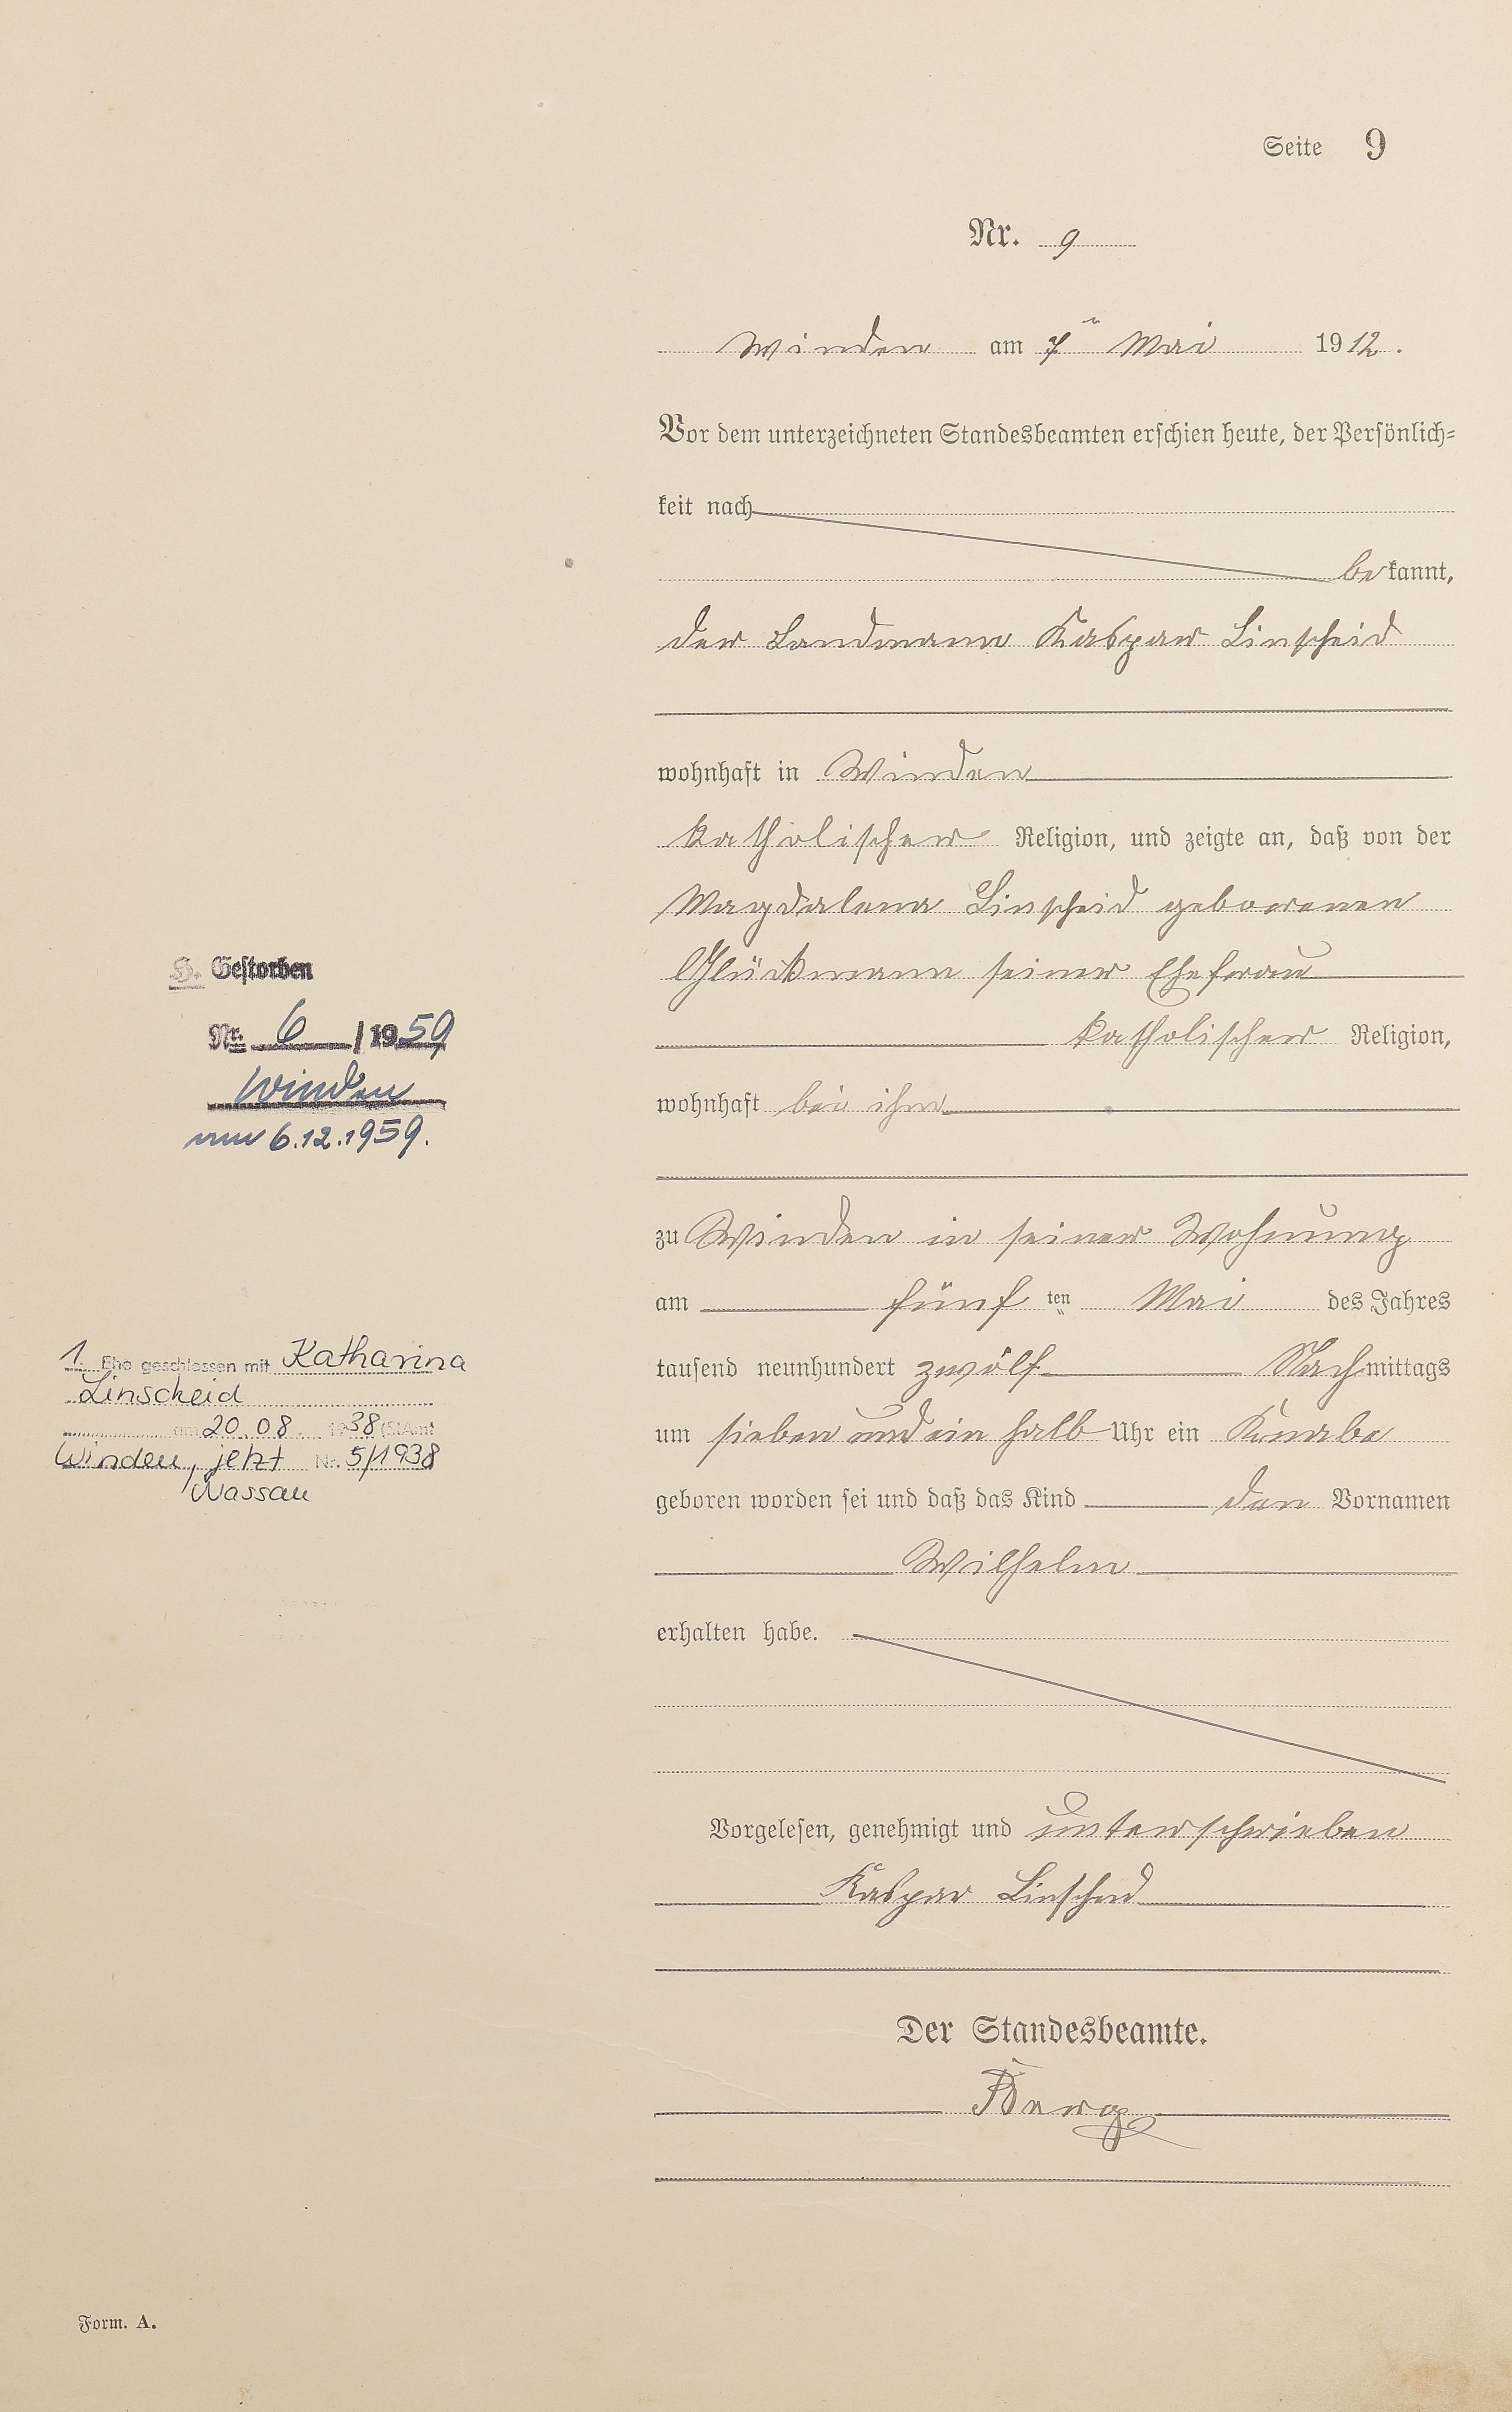 Seite 9
Nr. 9
Winden am 7ⁿ Mai 1912.
Vor dem unterzeichneten Standesbeamten erschien heute, der Persönlich=
keit nach
bekannt,
der Landmann Kaspar Linscheid
wohnhaft in Winden
katholischer Religion, und zeigte an, daß von der
Magdalena Linscheid geborenen
Glückmann seiner Ehefrau
katholischer Religion,
wohnhaft bei ihm
zu Winden in seiner Wohnung
am fünf ten Mai des Jahres
tausend neunhundert zwölf Nachmittags
um sieben und ein halb Uhr ein Knabe
geboren worden sei und daß das Kind den Vornamen
Wilhelm
erhalten habe.
Vorgelesen, genehmigt und unterschrieben
Kaspar Linscheid
Der Standesbeamte.
Berg
H. Gestorben
Nr. 6 / 1959
Winden
am 6.12.1959.
1. Ehe geschlossen mit Katharina
Linscheid
am 20.08. 1938 (StAmt
Winden, jetzt Nr. 5/1938
Nassau
Form. A.